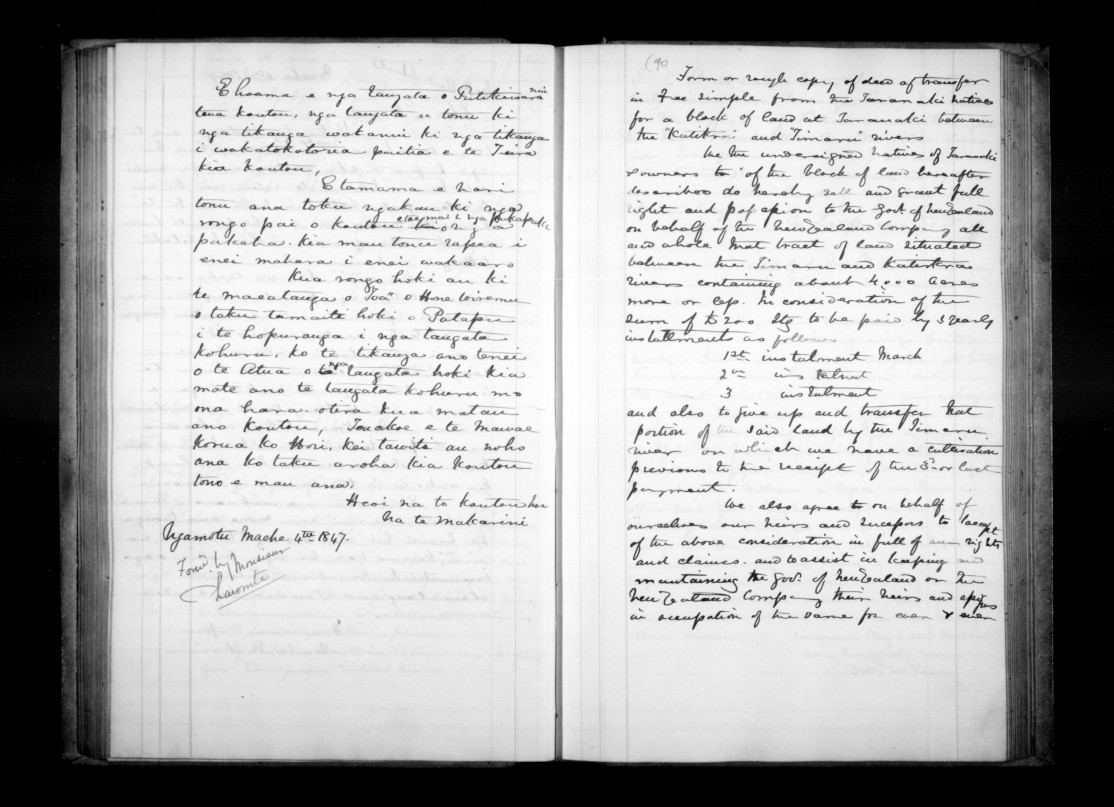 E hoama e nga tangata o Putikiwaranui
tena koutou, nga tangata u tonu ki
nga tikanga wakaanui ki nga tikanga
i wakatokotoria paitia e te Teira
kia koutou,
E tamama e hari
tonu ana toku ngakau ki nga
rongo pai o koutou i nga pukapuka
pakeha. Kia mau tonu rapea i
enei mahara i enei wakaaro
Kua rongo hoki au ki
te maeatanga o "Toa" o Hone Wiremu
o taku tamaiti hoki o Patapu
i te hopuranga i nga tangata
kohuru, ko te tikanga ano tenei
o te Atua o nga tangata hoki kia
mate ano te tangata kohuru mo
ona hara. otira kua matau
ano koutou, Tenakoe e te Mawae
korua ko Hori, kei tawiti au noho
ana ko taku aroha kia koutou
tono e mau ana.
Heoi na to koutou hoa
Na te Makarini
Ngamotu Maehe 4th 1847.
Forwd. by Monsieur
Lacomte
(90
Form or rough copy of deed of transfer
in Fee simple from the Taranaki natives
for a block of land at Taranaki between
the "Katikra" and "Timaru" rivers
We the undersigned natives of Taranaki
& owners to of the block of land hereafter
described do hereby sell and grant full
right and possession to the Govt. of New Zealand
on behalf of the New Zealand Company all
and whole that tract of land situated
between the Timaru and Katikra
rivers containing about 4000 acres
more or less. In consideration of the
sum of £200 Stg to be paid by 3 yearly
installments as follows
1st instalment March
2nd ins
3 instalment
and also to give up and transfer that
portion of the said land by the Timaru
river on which we have a cultivation
previous to the receipt of the 3rd or last
payment.
We also agree to on behalf of
ourselves our heirs and successors to accept
of the above consideration in full of our rights
and claims. and to assist in keeping and
maintaining the Govt. of New Zealand or the
New Zealand Company their heirs and assigns
in occupation of the same for ever & ever